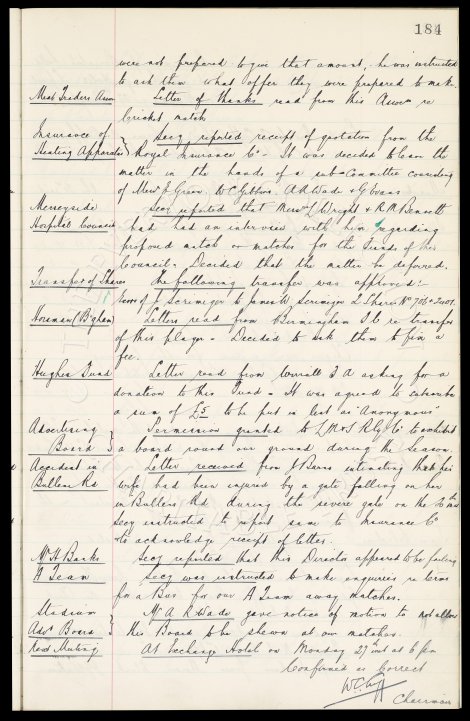 184
were not prepared to give that amount, he was instructed
to ask them what offer they were prepared to make.
Meat Traders Assocn Letter of thanks read from this Assocn re
Cricket match
Insurance of Secy reported receipt of quotation from the
Heating Apparatus Royal Insurance Co - It was decided to leave the
matter in the hands of a sub-Committee consisting
of Messrs Green, W C Gibbins, A R Wade & G Evans
Merseyside Secy reported that Messrs Wright & R M Bennett
Hospitals Council had had an interview with him regarding
proposed match or matches for the funds of the
Council - Decided that the matter be deferred.
Transfer of Shares The following transfer was approved:-
J Scrimeger to James W Scrimeger 2 Shares No 706 &
Horsman (B'gham) Letters read from Birmingham F.C re transfer
of this player - Decided to ask them to fix a
fee.
Hughes Fund Letter read from F A asking for a
donation to this Fund - It was agreed to subscribe
a sum of £5 to be put in list as "Anonymous"
Advertising Permission granted to L M & S Rly Co to exhibit
Board a board round our ground during the Season.
Accident in Letter received from J Burns intimating that his
Bullens Rd wife had been injured by a gate falling on her
in Bullens Rd during the severe gale on the
Secy instructed to report same to Insurance Co
& to acknowledge receipt of letter.
Mr H Banks Secy reported that this Director appeared to be failing
A Team Secy was instructed to make enquiries re terms
for a Bus for our A Team away matches.
Stadium Mr A R Wade gave notice of motion to not allow
Adv. Board this Board to be shewn at our matches.
Next Meeting At Exchange Hotel on Monday 27th inst at 6 pm
Confirmed as Correct
Chairman